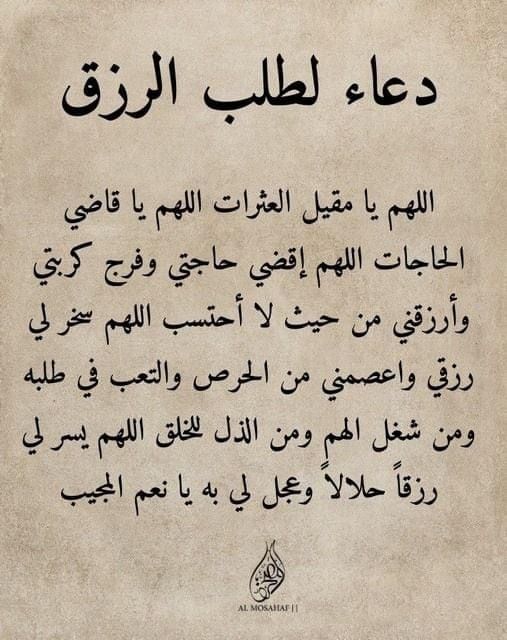 دعاء لطلب الرزق
اللهم يا مقيل العثرات اللهم يا قاضي
الحاجات اللهم إقضي حاجتي وفرج كربتي
وأرزقني من حيث لا أحتسب اللهم سخر لي
رزقي واعصمني من الحرص والتعب في طلبه
ومن شغل الهم ومن الذل للخلق اللهم يسر لي
رزقاً حلالاً وعجل لي به يا نعم المجيب
AL MOSAHAF ||